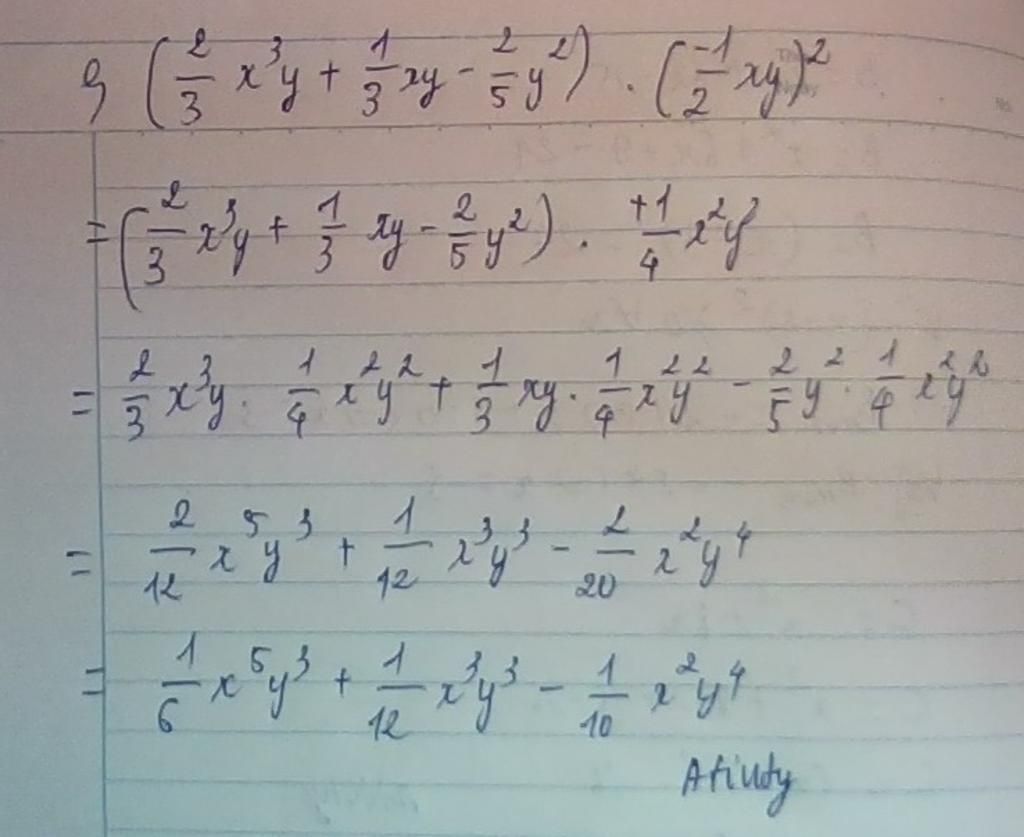 9 (2/3 x³y + 1/3 xy - 2/5 y²) . (-1/2 xy)²
= (2/3 x³y + 1/3 xy - 2/5 y²) . +1/4 x²y²
= 2/3 x³y . 1/4 x²y² + 1/3 xy . 1/4 x²y² - 2/5 y² . 1/4 x²y²
= 2/12 x⁵y³ + 1/12 x³y³ - 2/20 x²y⁴
= 1/6 x⁵y³ + 1/12 x³y³ - 1/10 x²y⁴